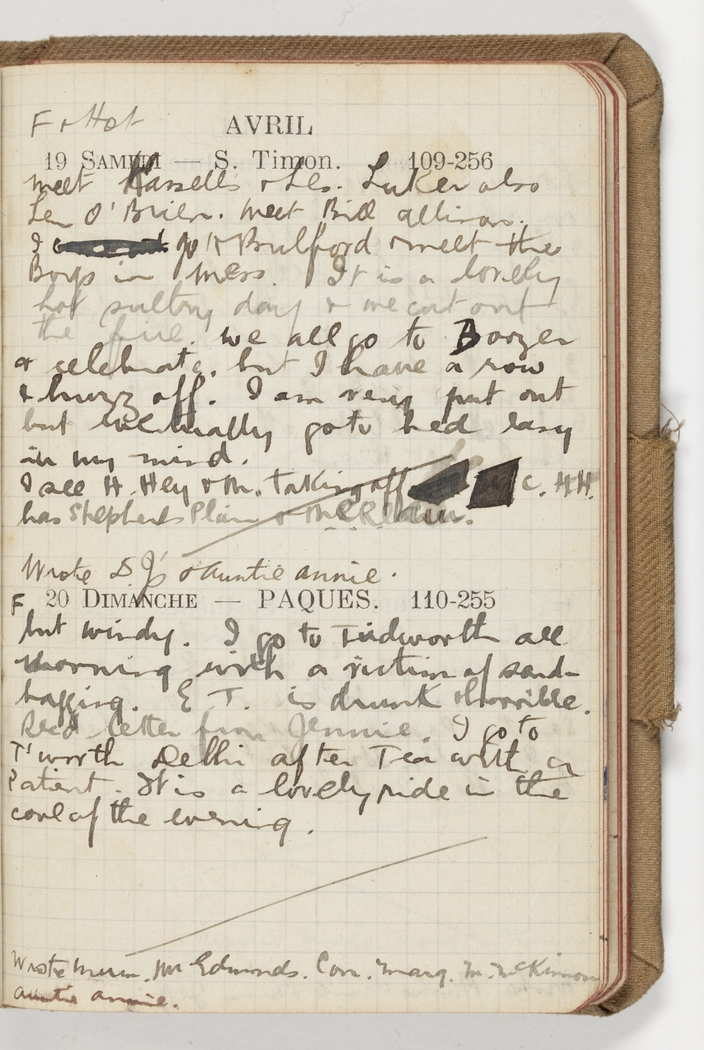 F & Hot
AVRIL
19 SAMEDI — S. Timon. 109-256
meet Hassells & Les. Luker also
Len O'Brien. Meet Bill Allison.
I go to Bulford & meet the
Boys in Mess. It is a lovely
hot sultry day & we cut out
the fire. We all go to Boozer
& celebrate. but I have a row
& buzz off. I am very put out
but eventually go to bed easy
in my mind.
I see H. Hey & M. taking off C. H.H.
has Shepherds Plain &
Wrote D J's & Auntie Annie.
F 20 DIMANCHE — PAQUES. 110-255
but windy. I go to Tidworth all
morning with a victim of sand-
bagging. E T. is drunk & horrible.
Recd letter from Jennie. I go to
T'worth Delhi after Tea with a
Patient. It is a lovely ride in the
cool of the evening.
Wrote Mum. Mr Edmonds. Con. Marg. M. McKinnon
Auntie Annie.